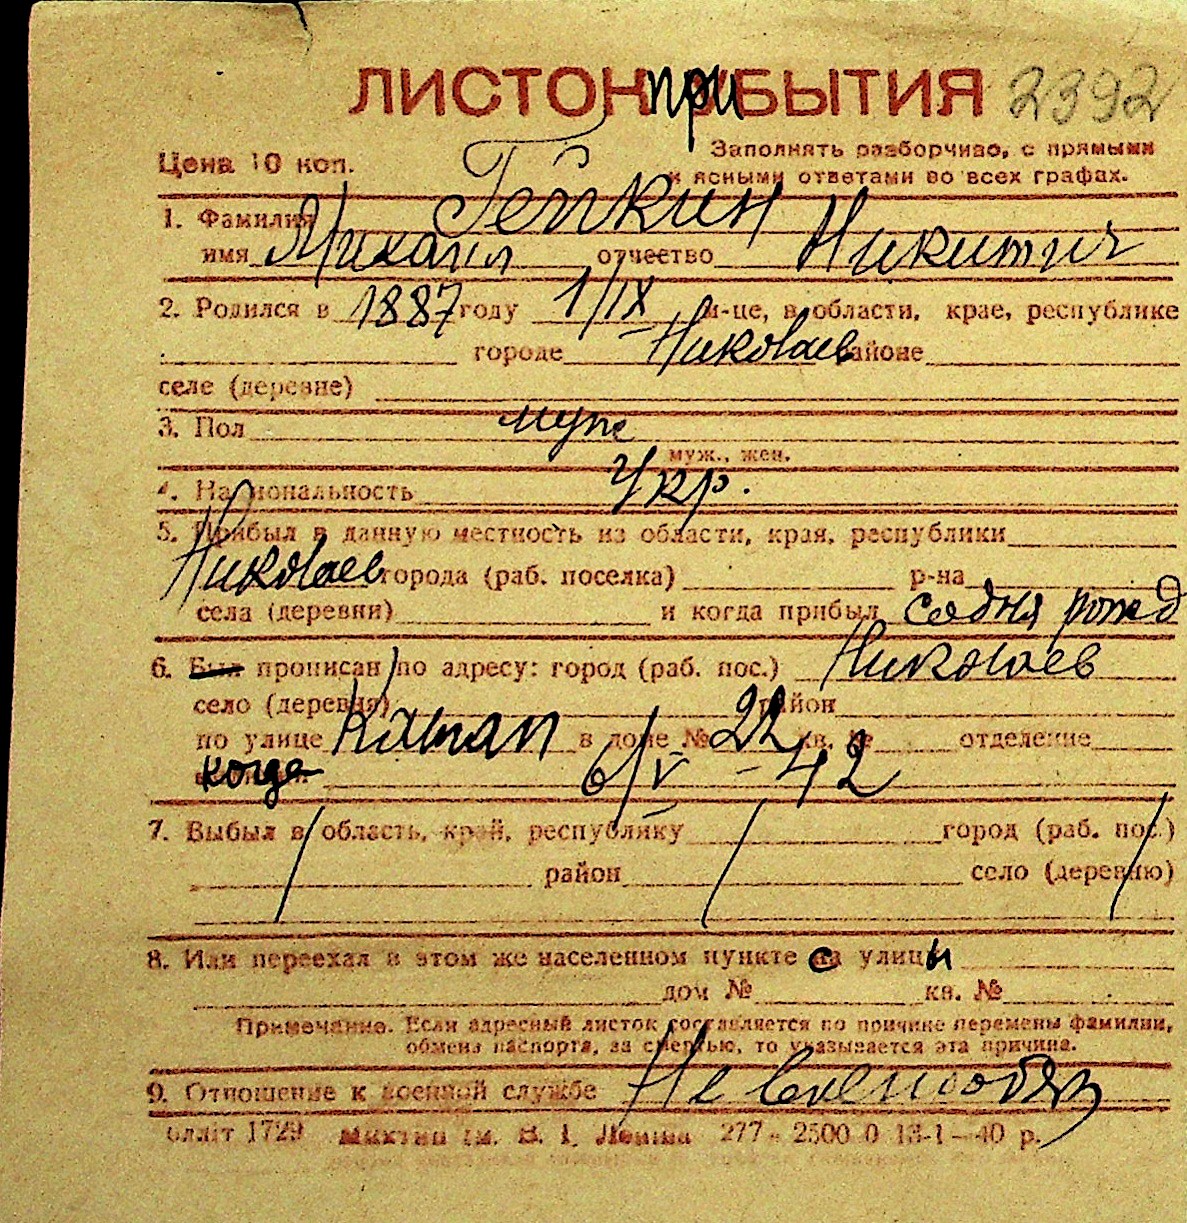 ЛИСТОК при БЫТИЯ 2392
Цена 10 коп.
Заполнять разборчиво, с прямыми
и ясными ответами во всех графах.
1. Фамилия Гепкин
имя Михаил отчество Никитич
2. Родился в 1887 году 1/IX м-це, в области, крае, республике
городе Николаев районе
селе (деревне)
3. Пол муж
муж., жен.
4. Национальность Укр.
5. Прибыл в данную местность из области, края, республики
Николаев города (раб. поселка) р-на
села (деревни) и когда прибыл со дня рожд
6. Был прописан по адресу: город (раб. пос.) Николаев
село (деревня) район
по улице в доме № 22 кв. № отделение
когда 6/V - 42
7. Выбыл в область, край, республику город (раб. пос.)
район село (деревню)
8. Или переехал в этом же населенном пункте с улицы
дом № кв. №
Примечание. Если адресный листок составляется по причине перемены фамилии,
обмена паспорта, за смертью, то указывается эта причина.
9. Отношение к военной службе Не военнообяз
1729 им. В. І. Леніна 277 - 2500 0 13-1-40 р.